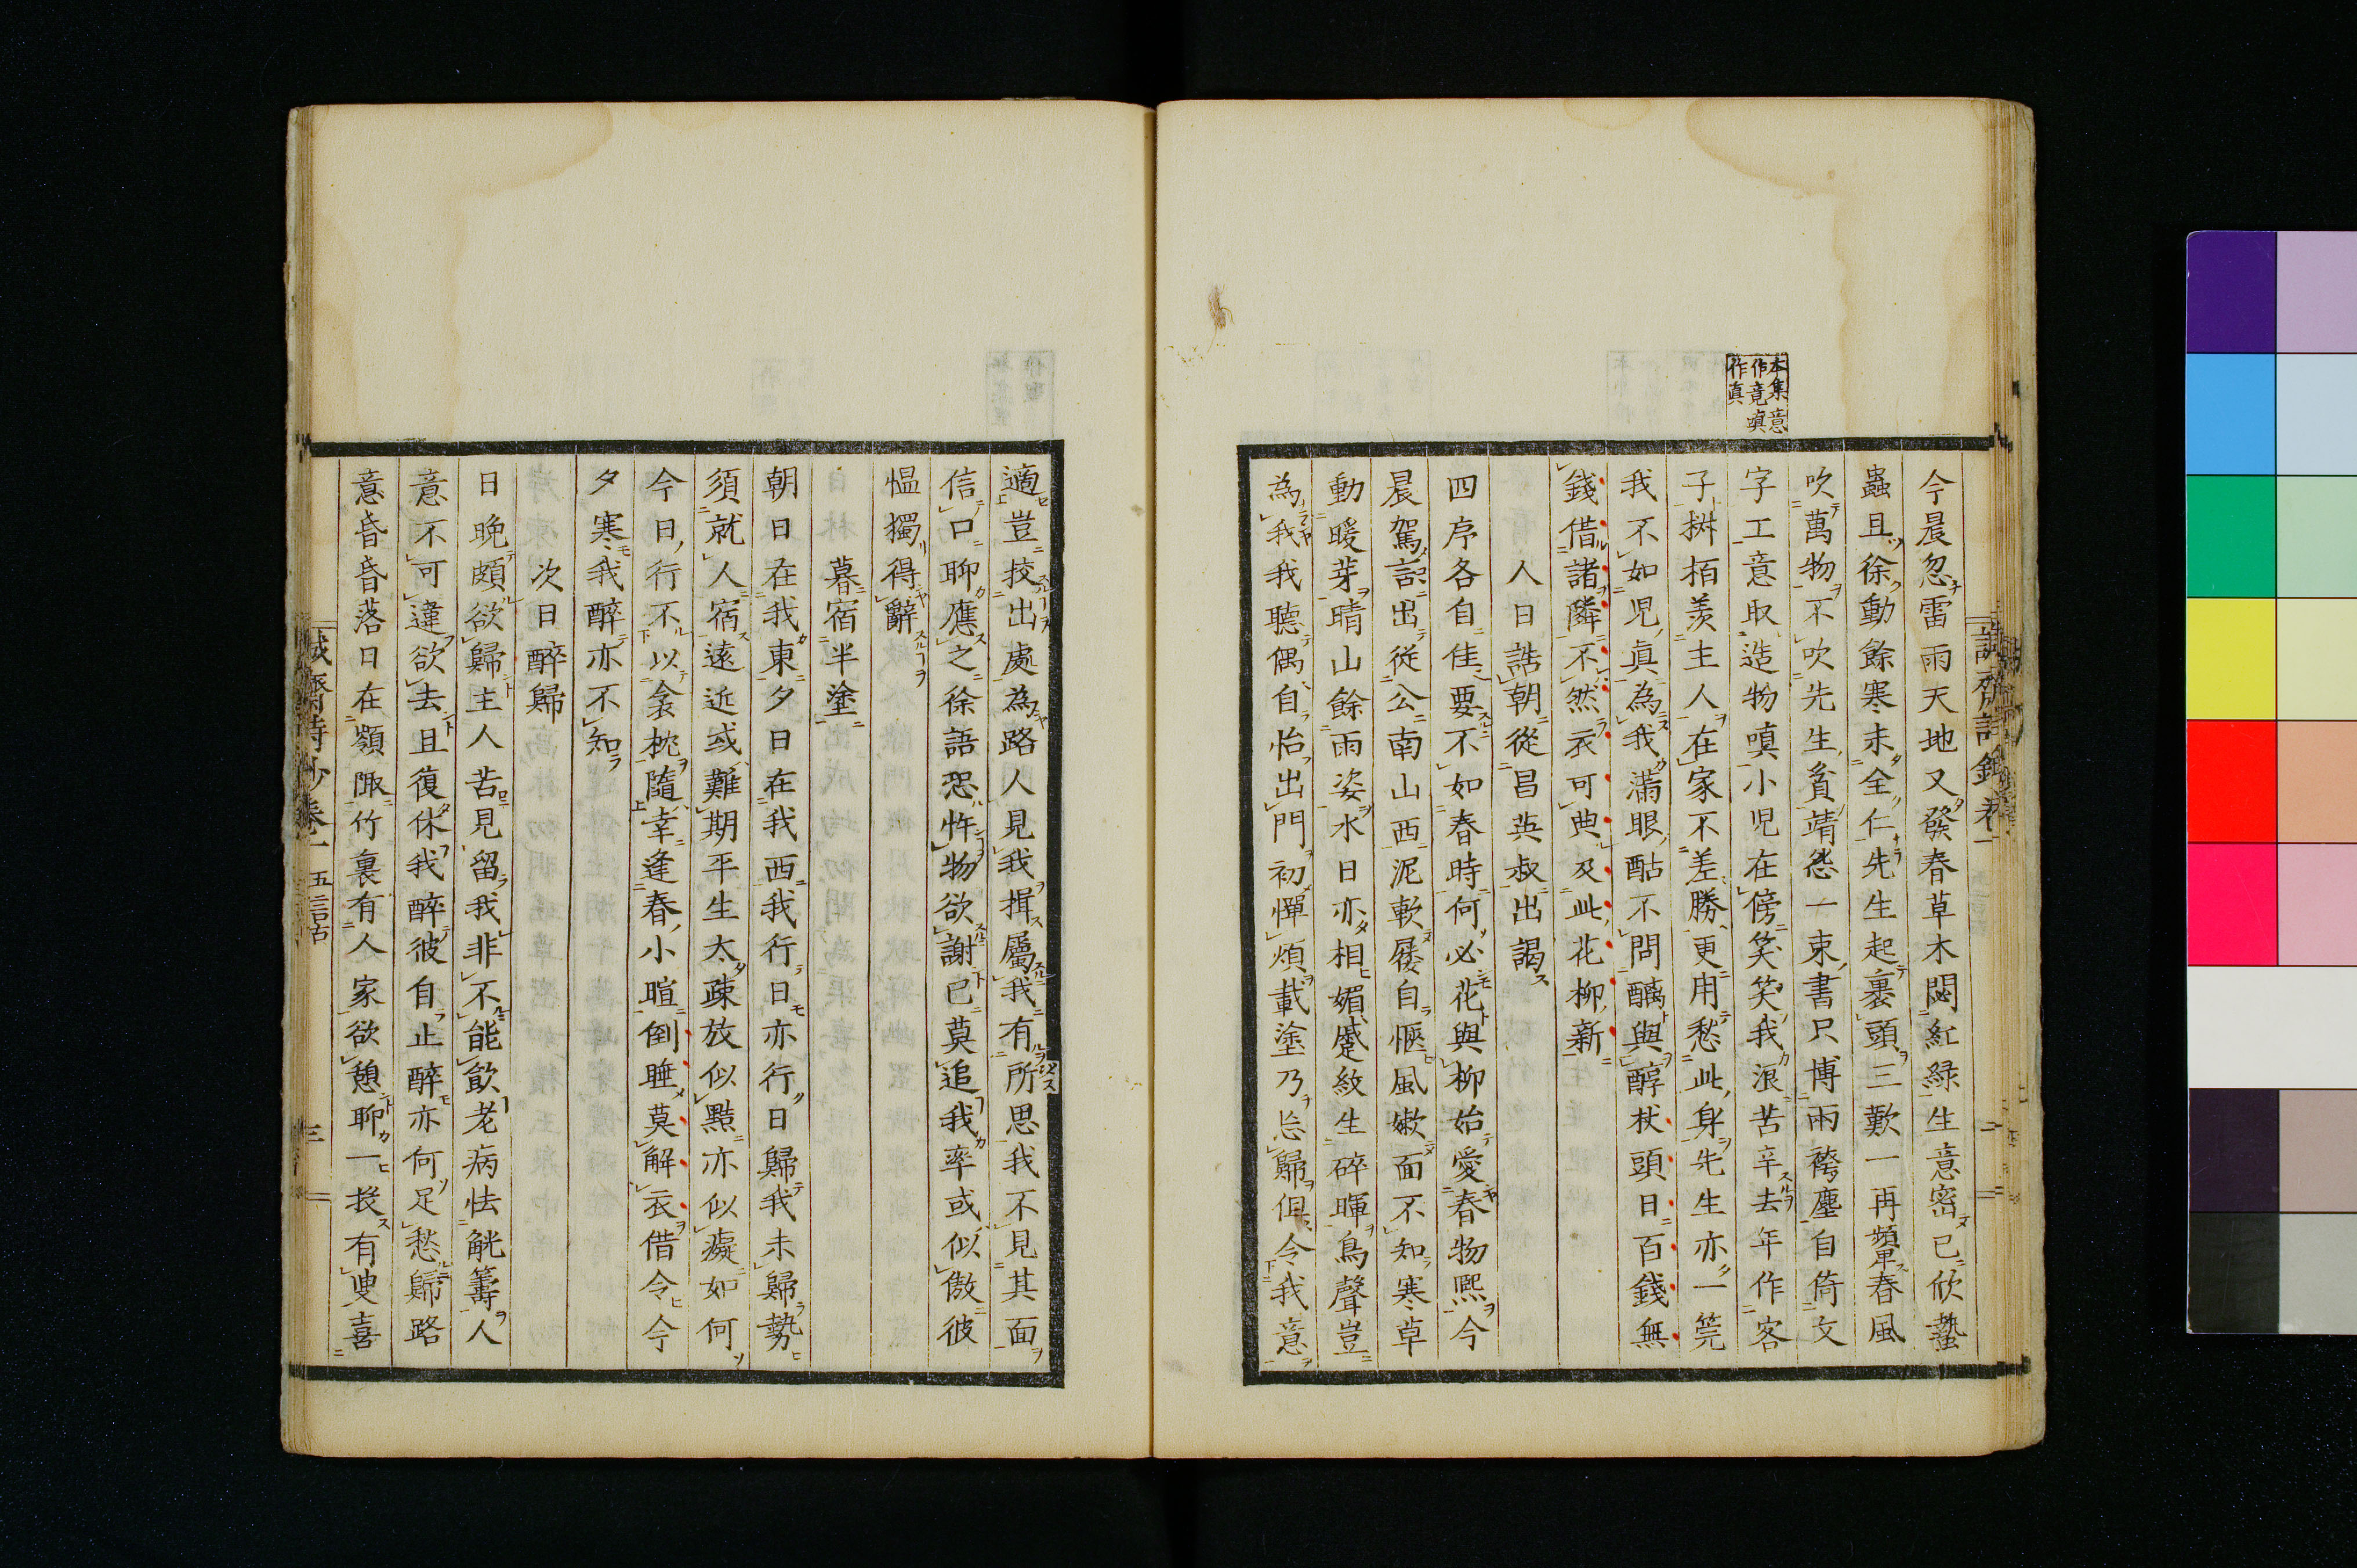 本集意
作竟嗔
作真
今晨忽雷雨天地又發春草木悶紅綠生意密已欣蟄
蟲且徐動餘寒未全仁先生起裹頭三歎一再頻春風
吹萬物不吹先生貧靖怨一束書只博兩袴塵自倚文
字工意取造物嗔小児在傍笑笑我浪苦辛去年作客
子椒栢羨主人在家不差勝更用愁此身先生亦一筦
我不如児真為我滿眼酤不問醨與醇杖頭日百錢無
錢借諸隣不然衣可典及此花柳新
人日詰朝從昌英叔出謁
四序各自佳要不如春時何必花與柳始愛春物熙今
晨駕言出從公南山西泥軟屐自愜風嫩面不知寒草
動暖芽晴山餘雨姿水日亦相媚蹙紋生碎暉鳥聲豈
為我我聽偶自怡出門初憚煩載塗乃忘歸俱令我意
適豈挍出處為路人見我揖屬我有所思我不見其面
信口聊應之徐語恐忤物欲謝已莫追我率或似傲彼
慍獨得辭
暮宿半塗
朝日在我東夕日在我西我行日亦行日歸我未歸勢
須就人宿遠近或難期平生太疎放似黠亦似癡如何
今日行不以衾枕隨幸逢春小暄倒睡莫解衣借令今
夕寒我醉亦不知
次日醉歸
日晚頗欲歸主人苦見留我非不能飲老病怯觥籌人
意不可違欲去且復休我醉彼自止醉亦何足愁歸路
意昏昏落日在嶺陬竹裏有人家欲憩聊一投有叟喜
誠齋詩鈔卷一 五言古 三